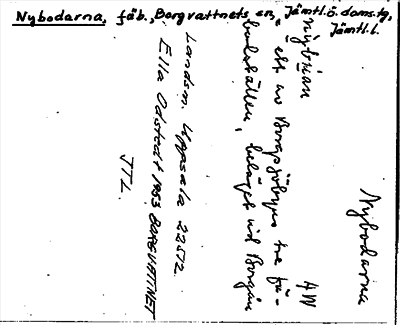 Nybodarna, fäb., Borgvattnets sn, Jämtl. ö. doms. tg,
Jämtl. l.
Nybodarna
AW
nybu̇an
ett av Borgsjöbyns tre fä-
bodställen, beläget vid Borgån
Landsm. Uppsala 22512.
Ella Odstedt 1953 BORGVATTNET
JTL.